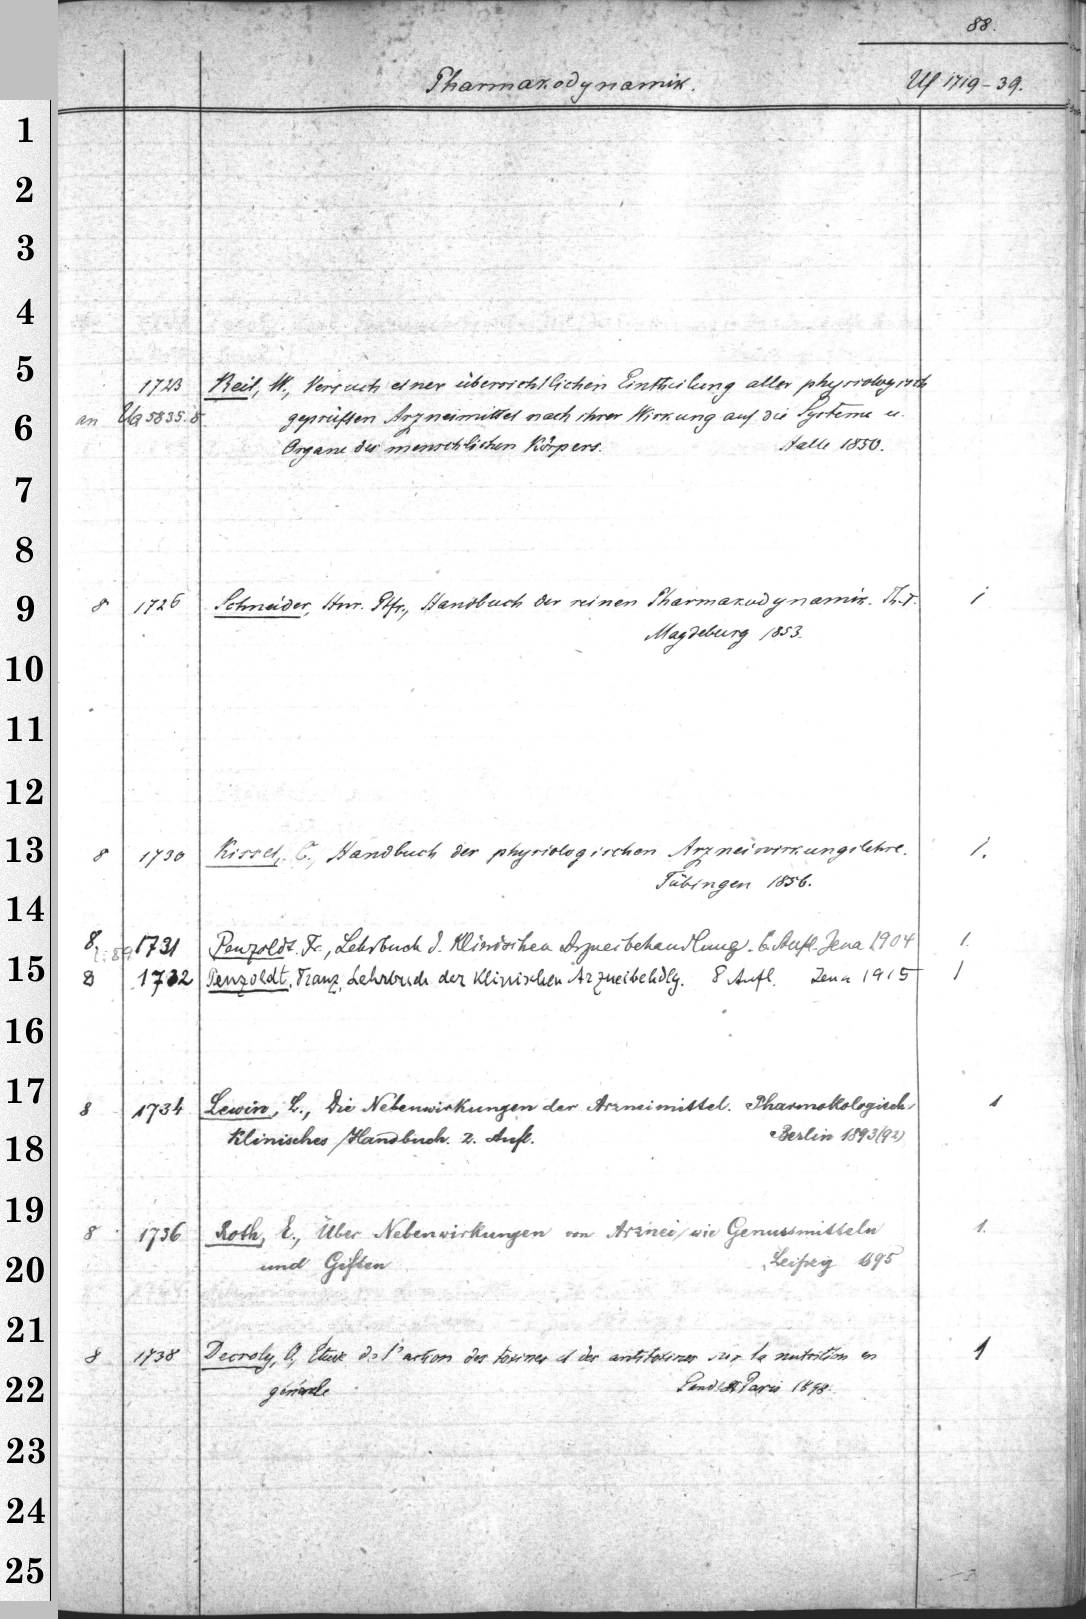 88.
Pharmakodynamik. Uf 1719-39.
1
2
3
4
5
1723 Reil, W., Versuch einer übersichtlichen Eintheilung aller physiologisch
6
an Ua 5835. 8 geprüften Arzneimittel nach ihrer Wirkung auf die Systeme u.
Organe des menschlichen Körpers. Halle 1850.
7
8
9
8 1726 Schneider, Hnr. Gtfr., Handbuch der reinen Pharmakodynamik. Th. I. 1
Magdeburg 1853.
10
11
12
13
8 1730 Kissel, C., Handbuch der physiologischen Arzneiwirkungslehre. 1.
Tübingen 1856.
14
8 1731 Penzoldt. Fr., Lehrbuch d. klinischen Arzneibehandlung. 6. Aufl. Jena 1904 1.
15
8 1732 Penzoldt, Franz, Lehrbuch der klinischen Arzneibehdlg. 8 Aufl. Jena 1915 1
16
17
8 1734 Lewin, L., Die Nebenwirkungen der Arzneimittel. Pharmakologisch- 1
18
klinisches Handbuch. 2. Aufl. Berlin 1893 (92)
19
8 1736 Roth, E., Über Nebenwirkungen von Arznei- wie Genussmitteln 1.
20
und Giften Leipzig 1895
21
8 1738 Decroly, O, Etude de l'action des toxines et des antitoxines sur la nutrition en 1
22
générale Gand & Paris 1898.
23
24
25